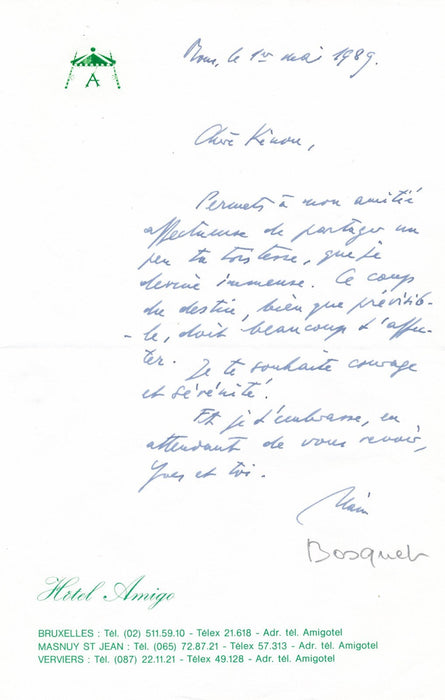 A
le 1er mai 1989.
Chère
Permets à mon amitié
affectueuse de partager un
peu ta tristesse, que je
devine immense. Ce coup
du destin, bien que prévisib-
le, doit beaucoup t'affec-
ter. Je te souhaite courage
et sérénité.
Et je t'embrasse, en
attendant de vous revoir,
Yves et toi.
Alain
Bosquet
Hôtel Amigo
BRUXELLES : Tél. (02) 511.59.10 - Télex 21.618 - Adr. tél. Amigotel
MASNUY ST JEAN : Tél. (065) 72.87.21 - Télex 57.313 - Adr. tél. Amigotel
VERVIERS : Tél. (087) 22.11.21 - Télex 49.128 - Adr. tél. Amigotel